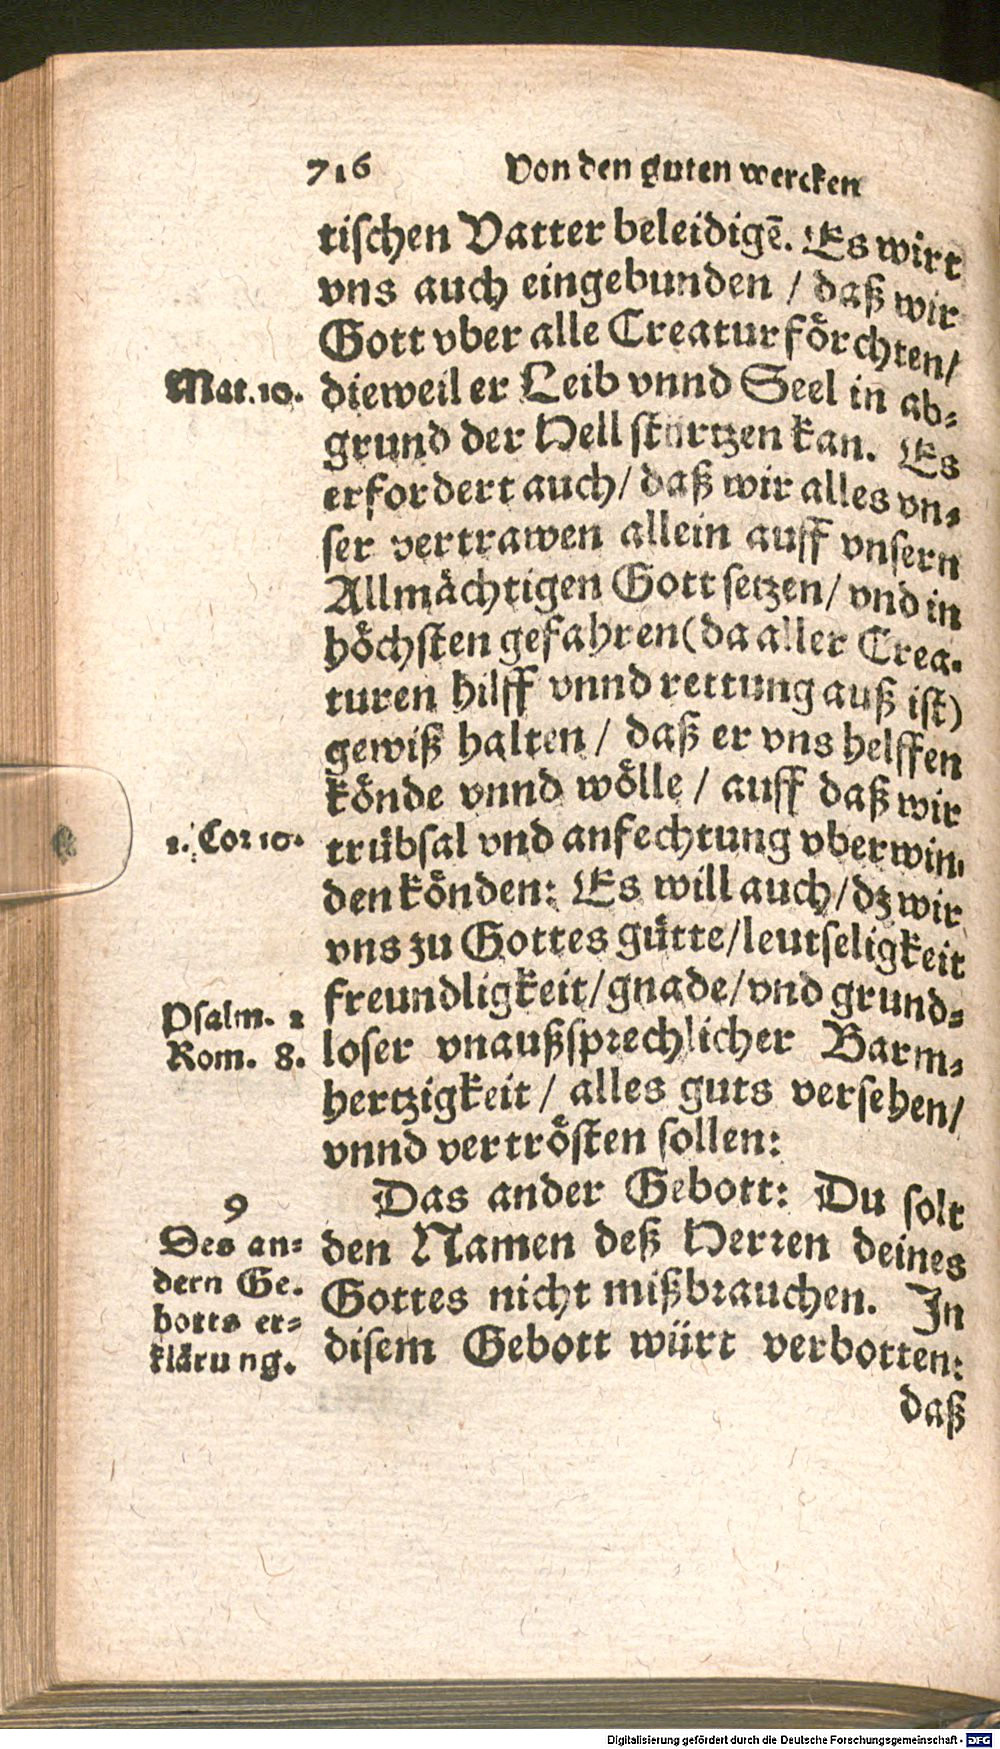 716 Von den guten wercken
tischen Vatter beleidigē. Es wirt
vns auch eingebunden / daß wir
Gott vber alle Creatur förchten/
Mat. 10.
dieweil er Leib vnnd Seel in ab⸗
grund der Hell stürtzen kan. Es
erfordert auch/ daß wir alles vn⸗
ser vertrawen allein auff vnsern
Allmächtigen Gott setzen/ vnd in
höchsten gefahren (da aller Crea⸗
turen hilff vnnd rettung auß ist)
gewiß halten / daß er vns helffen
könde vnnd wölle / auff daß wir
1. Cor 10.
trübsal vnd anfechtung vberwin⸗
den könden: Es will auch/ dz wir
vns zu Gottes gütte/ leutseligkeit
freundligkeit/ gnade/ vnd grund⸗
Psalm. 2
Rom. 8.
loser vnaußsprechlicher Barm⸗
hertzigkeit / alles guts versehen/
vnnd vertrösten sollen:
Das ander Gebott: Du solt
9
Des an⸗
dern Ge.
botts er⸗
klärung.
den Namen deß Herren deines
Gottes nicht mißbrauchen. In
disem Gebott würt verbotten:
daß
Digitalisierung gefördert durch die Deutsche Forschungsgemeinschaft - DFG